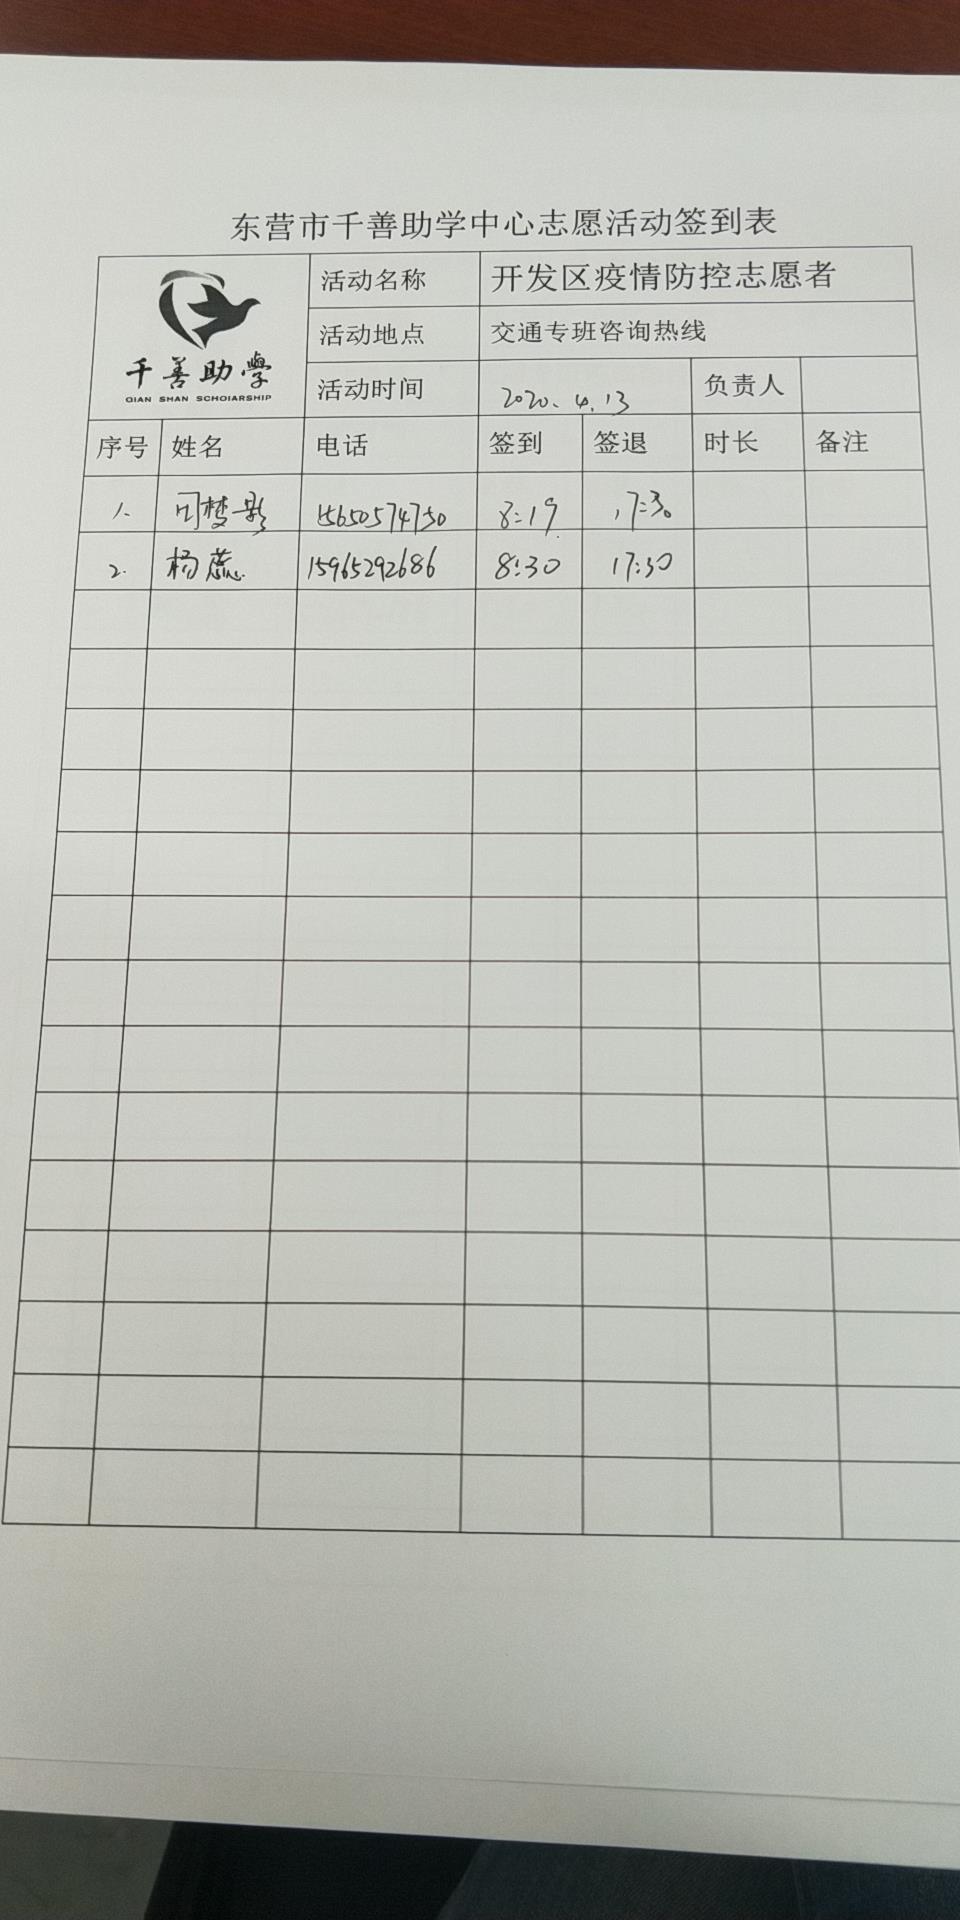 东营市千善助学中心志愿活动签到表
千善助學
QIAN SHAN SCHOIARSHIP
活动名称 开发区疫情防控志愿者
活动地点 交通专班咨询热线
活动时间 2020.4.13 负责人
序号 姓名 电话 签到 签退 时长 备注
1. 司梦影 15650574750 8:19 17:30
2. 杨蕊 15965292686 8:30 17:30